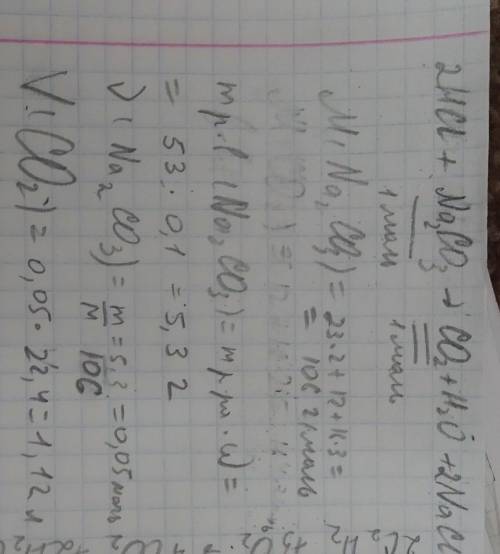 2HCl + Na₂CO₃ → CO₂ + H₂O + 2NaCl
1 моль 1 моль
M(Na₂CO₃) = 23·2 + 12 + 16·3 =
= 106 г/моль
m р.в (Na₂CO₃) = m р-ра · ω =
= 53 · 0,1 = 5,3 г
ν(Na₂CO₃) = m/M = 5,3/106 = 0,05 моль
V(CO₂) = 0,05 · 22,4 = 1,12 л